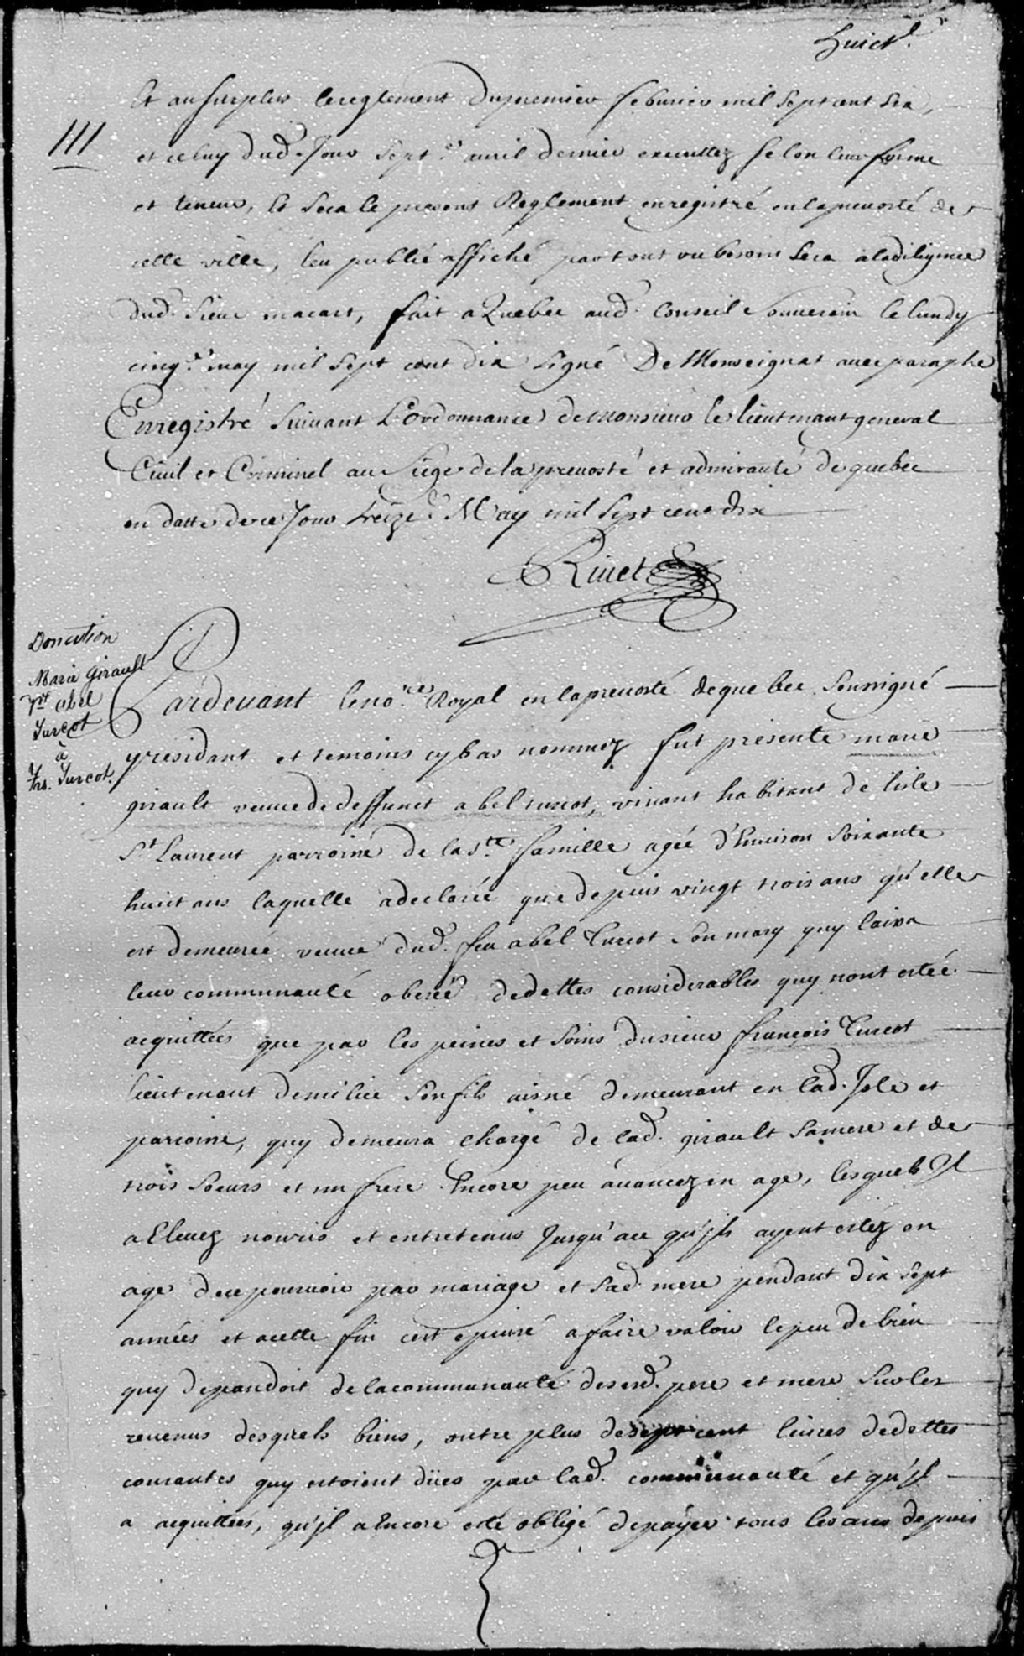 huict.
Et au surplus le reglement du premier feburier mil sept cent six,
111
et celuy dud. Jour sept.e avril dernier executtez selon leur forme
et teneur, et sera le present Reglement enregistré en la prevosté de
cette ville, leu publié affiché partout ou besoin sera a la diligence
dud. Sieur macart, fait a Quebec aud. Conseil Souverain le lundy
cinq.e may mil sept cent dix signé De Monseignat avec paraphe
Enregistré suivant L'ordonnance de Monsieur le lieutenant general
Civil et Criminel au Siege de la prevosté et admirauté de quebec
en datte de ce Jour treize.e May mil sept cent dix
Rivet
Donation
Marie Girault
Vve abel
Turcot
à
frs. Turcot.
Pardevant le no.re Royal en la prevosté de quebec soussigné
y residant et temoins cy bas nommez fut presente marie
girault veuve de deffunct abel turcot, vivant habitant de lisle
St Laurent parroisse de la Ste. famille agée d'Environ soixante
huict ans laquelle a declarée que depuis vingt trois ans qu'elle
est demeurée veuve dud. feu abel Turcot son mary quy laissa
leur communauté oberé de dettes considerables quy nont estée
acquittées que par les peines et soins du sieur françois Turcot
lieutenant de milice son fils aisné demeurant en lad. Isle et
paroisse, quy demeura chargé de lad. girault sa mere et de
trois soeurs et un frere Encore peu avancez en age, lesquels Il
a Elevez nouris et entretenus Jusqu'a ce qu'ils ayent estez en
age de ce pourvoir par mariage et sad. mere pendant dix sept
années et a cette fin c'est epuisé a faire valoir le peu de bien
quy dependoit de la communauté de sesd. pere et mere sur les
revenus desquels biens, outre plus de sept cent livres de dettes
courantes quy estoient düees par lad. communauté et qu'il
a acquittées, qu'il a Encore esté obligé de payer tous les ans depuis